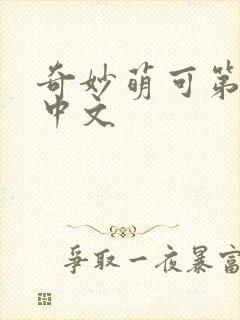 奇妙萌可第
中文
争取一夜暴富